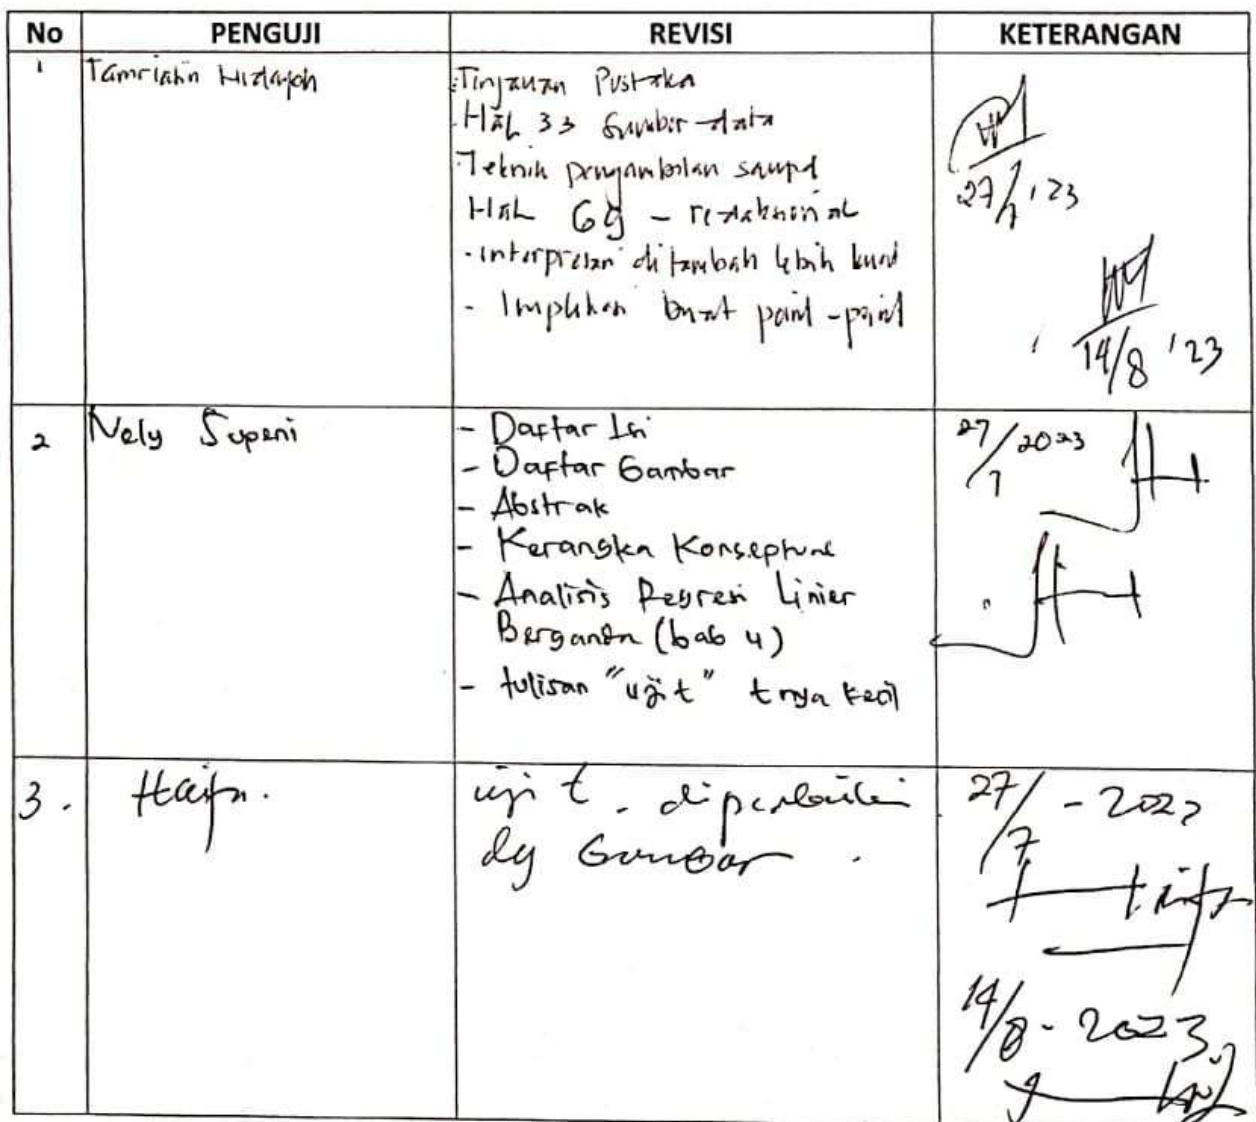 No PENGUJI REVISI KETERANGAN
1 Tamriatin Hidayah
- Tinjauan Pustaka
- Hal 33 Sumber data
- Teknik pengambilan sampel
Hal 69 - redaksional
- interpretasi ditambah lebih kuat
- Implikasi buat point-point
27/7 '23
14/8 '23
2 Nely Supeni
- Daftar Isi
- Daftar Gambar
- Abstrak
- Kerangka Konseptual
- Analisis Regresi Linier
Berganda (bab 4)
- tulisan "uji t" t nya kecil
27/7 2023
3. Haifa.
uji t. diperbaiki
dg Gambar.
27/7 - 2023
14/8 - 2023